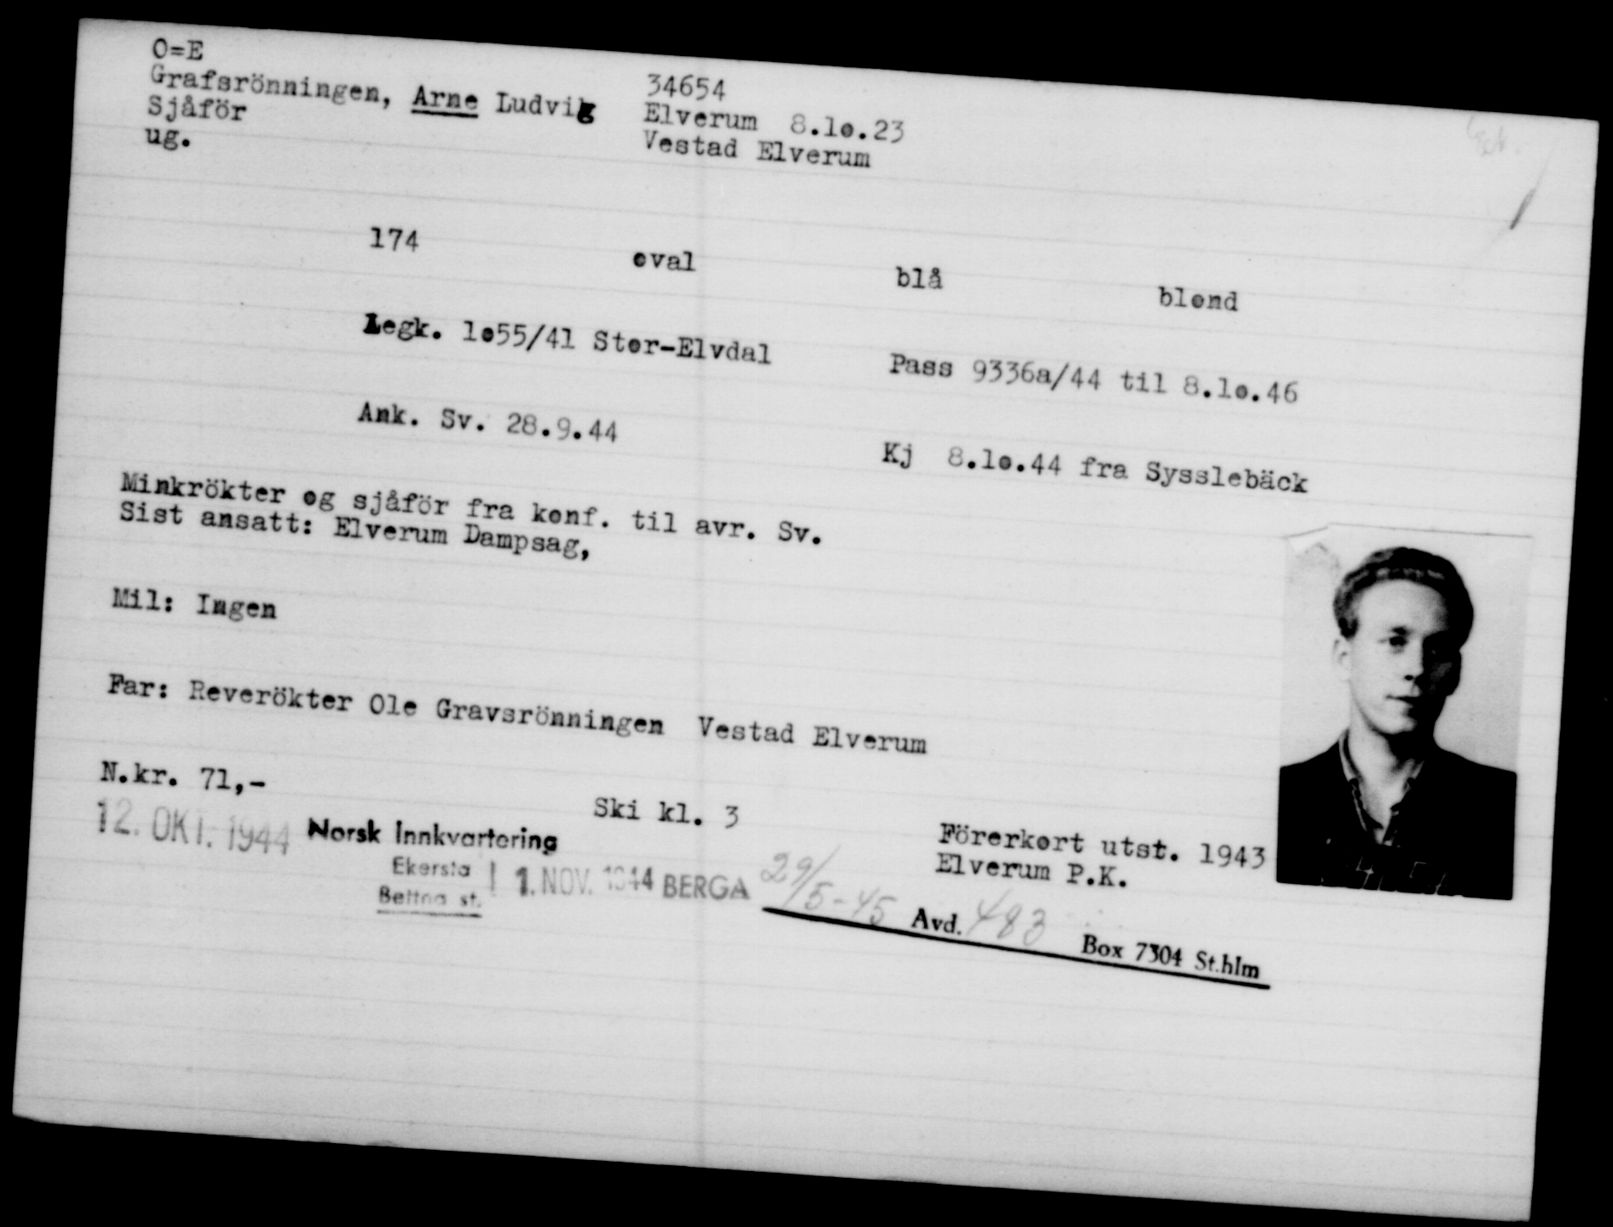 O=E
Grafsrönningen, Arne Ludvig 34654
Sjåför Elverum 8.10.23
ug. Vestad Elverum
174 oval blå blond
Legk. 1055/41 Stor-Elvdal Pass 9336a/44 til 8.10.46
Ank. Sv. 28.9.44 Kj 8.10.44 fra Sysslebäck
Minkrökter og sjåför fra konf. til avr. Sv.
Sist ansatt: Elverum Dampsag,
Mil: Ingen
Far: Reverökter Ole Gravsrönningen Vestad Elverum
N.kr. 71,- Ski kl. 3 Förerkort utst. 1943
Elverum P.K.
12. OKT. 1944 Norsk Innkvartering
Ekersta
Bettna st.
1. NOV. 1944 BERGA 29/5-45 Avd. 483 Box 7304 St.hlm